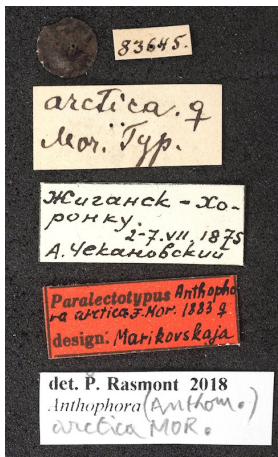 83645.
arctica. ♀
Mor. Typ.
Жиганск - Хо-
ронку.
2-7.VII, 1875
А. Чекановский
Paralectotypus Anthopho
ra arctica F. Mor. 1883 ♀
design: Marikovskaja
det. P. Rasmont 2018
Anthophora (Anthom.)
arctica MOR.